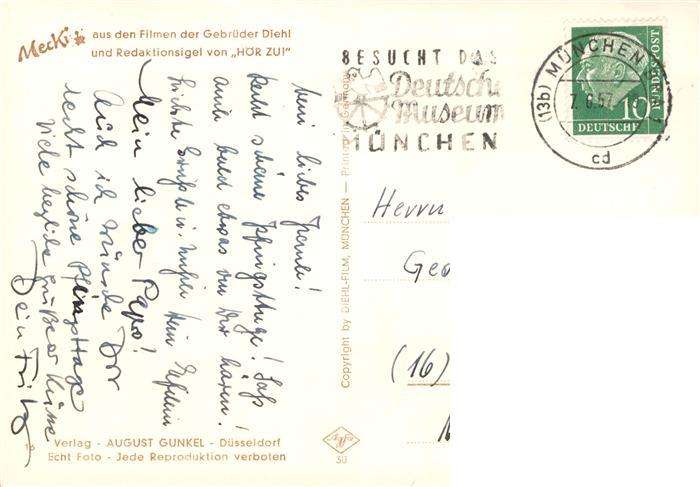 Mecki
aus den Filmen der Gebrüder Diehl
und Redaktionsigel von „HÖR ZU!"
BESUCHT DAS
Deutsche
Museum
MÜNCHEN
(13b) MÜNCHEN
7. 6. 57
cd
10
DEUTSCHE
BUNDESPOST
Mein liebes
Recht schöne Pfingsttage! Laß
auch bald etwas von Dir hören!
Mein lieber Papa!
Auch ich wünsche Dir
recht schöne Pfingsttage
Viele herzliche Grüße
Dein Fritz
Copyright by DIEHL-FILM, MÜNCHEN — Printed in Germany
Herrn
Geo
(16)
16
Verlag - AUGUST GUNKEL - Düsseldorf
Echt Foto - Jede Reproduktion verboten
Agfa
50